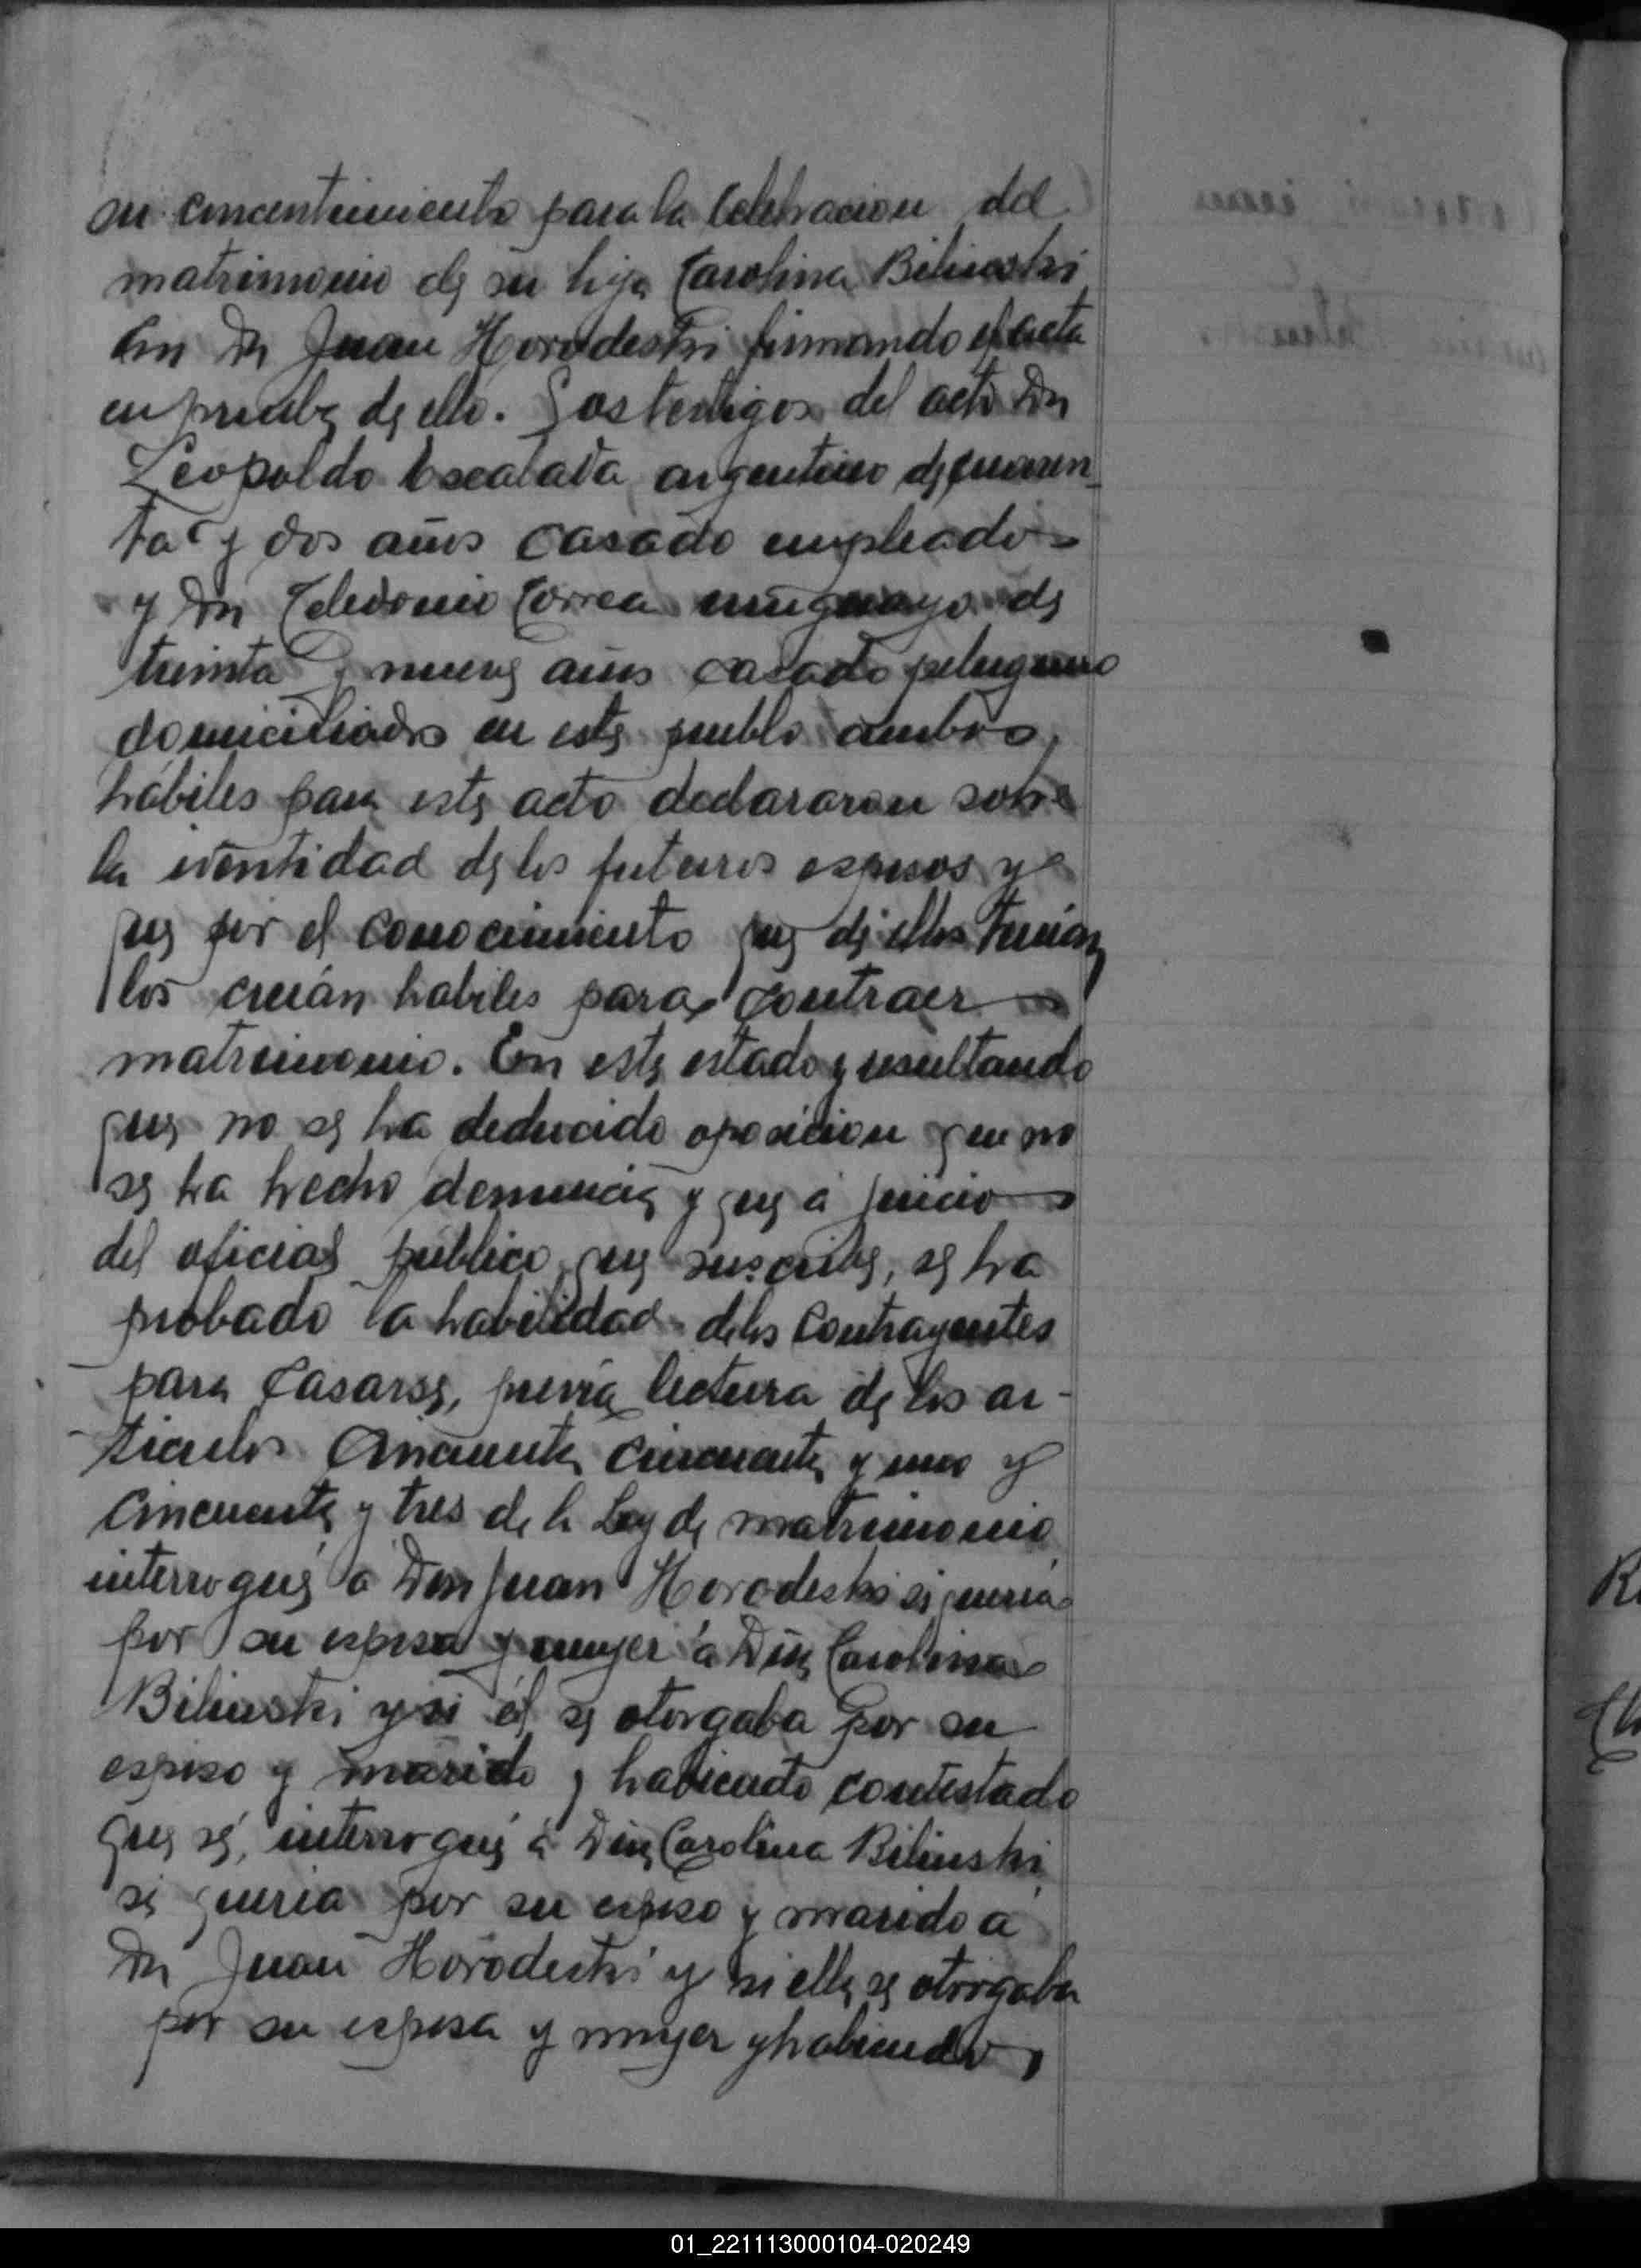 su concentimiento para la celebracion del
matrimonio de su hija Carolina Bilinski
con Dn Juan Horodeski firmando el acta
en prueba de ello. Los testigos del acto Don
Leopoldo Escalada argentino de cuaren-
ta y dos años casado empleado
y Dn Celedonio Correa uruguayo de
treinta y nueve años casado peluquero
domiciliados en este pueblo ambos,
hábiles para este acto declararon sobre
la identidad de los futuros esposos y
que por el conocimiento que de ellos tenían
los creían habiles para contraer
matrimonio. En este estado y resultando
que no se ha deducido oposicion que no
se ha hecho denuncia y que á juicio
del oficial público que suscribe, se ha
probado la habilidad de los contrayentes
para casarse, previa lectura de los ar-
ticulos cincuenta cincuenta y uno y
cincuenta y tres de la Ley de matrimonio
interrogué á Don Juan Horodeski si quería
por su esposa y mujer á Dña Carolina
Bilinski y si él se otorgaba por su
esposo y marido, habiendo contestado
que sí, interrogué á Dña Carolina Bilinski
si quería por su esposo y marido á
Dn Juan Horodeski y si ella se otorgaba
por su esposa y mujer y habiendo
01_221113000104-020249